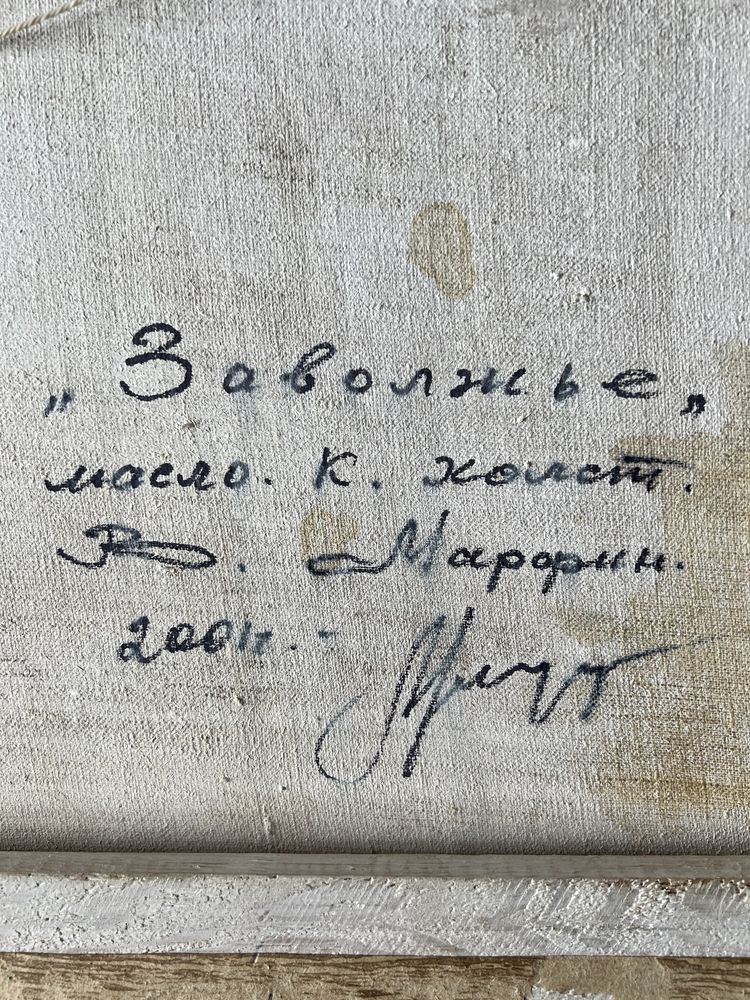 „Заволжье„
масло. к. холст.
В. Марфин.
2001г.-